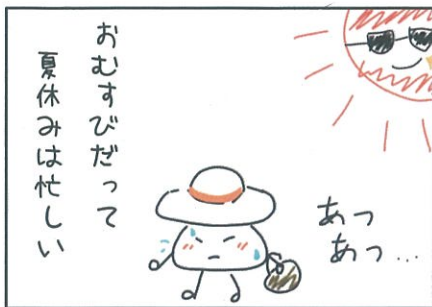 おむすびだって
夏休みは忙しい
あっ
あっ…